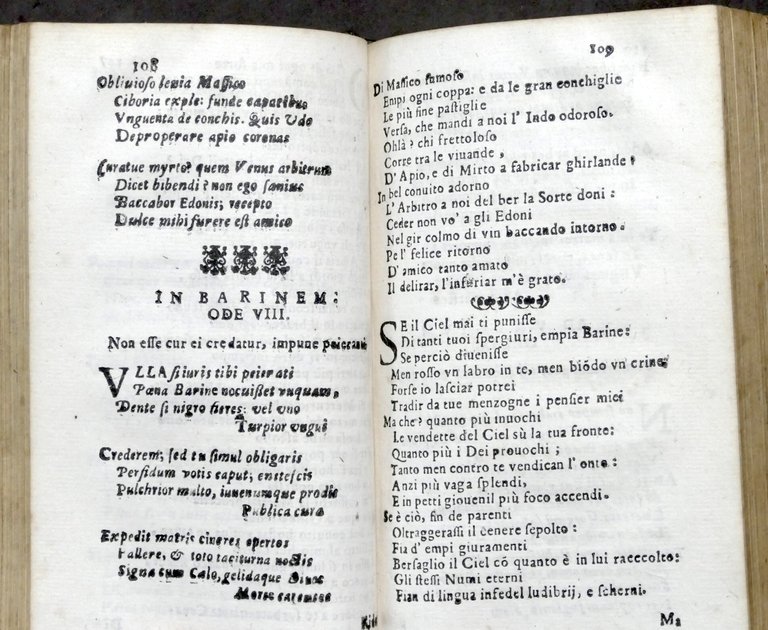 108
Obliuioso leuia Massico
Ciboria exple: funde capacibus
Vnguenta de conchis. Quis Vdo
Deproperare apio coronas
Curatue myrto? quem Venus arbitrum
Dicet bibendi? non ego sanius
Baccabor Edonis; recepto
Dulce mihi furere est amico
IN BARINEM:
ODE VIII.
Non esse cur ei credatur, impune peieranti
VLLA si iuris tibi peierati
Pœna Barine nocuisset vnquam,
Dente si nigro fieres; vel vno
Turpior vngui
Crederem; sed tu simul obligasti
Perfidum votis caput; enitescis
Pulchrior multo, iuuenumque prodis
Publica cura
Expedit matris cineres opertos
Fallere, & toto taciturna noctis
Signa cum Cælo, gelidaque Diuos
Morte carentes
109
Di Massico fumoso
Empi ogni coppa: e da le gran conchiglie
Le più fine pastiglie
Versa, che mandi a noi l' Indo odoroso.
Ohlà? chi frettoloso
Corre tra le viuande,
D' Apio, e di Mirto a fabricar ghirlande?
In bel conuito adorno
L' Arbitro a noi del ber la Sorte doni:
Ceder non vo' a gli Edoni
Nel gir colmo di vin baccando intorno.
Pe l' felice ritorno
D' amico tanto amato
Il delirar, l'infuriar m'è grato.
SE il Ciel mai ti punisse
Di tanti tuoi spergiuri, empia Barine:
Se perciò diuenisse
Men rosso vn labro in te, men biōdo vn crine:
Forse io lasciar potrei
Tradir da tue menzogne i pensier miei
Ma che? quanto più inuochi
Le vendette del Ciel sù la tua fronte:
Quanto più i Dei prouochi;
Tanto men contro te vendican l' onte:
Anzi più vaga splendi,
E in petti giouenil più foco accendi.
Se è ciò, fin de parenti
Oltraggerassi il cenere sepolto:
Fia d' empi giuramenti
Bersaglio il Ciel cō quanto è in lui raccolto:
Gli stessi Numi eterni
Fian di lingua infedel ludibrij, e scherni.
Ma